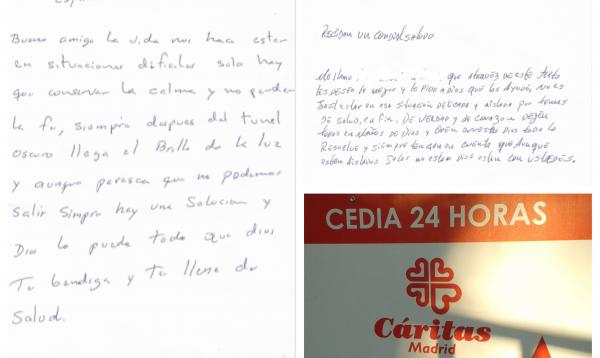 Bueno amigo la vida nos hace estar
en situaciones dificiles solo hay
que conservar la calma y no perder
la fe, siempre despues del tunel
oscuro llega el Brillo de la luz
y aunque paresca que no podemos
Salir Simpre hay una Solucion y
Dios lo puede todo que dios
Te bendiga y te llene de
Salud.
RECIBAN UN CORDIAL SALUDO
Me llamo que atravéz de este texto
les deseo lo mejor y le pido a Dios que los Ayude, no es
facil estar en esa situación delicada y aislada por temas
de salud, en fin. De verdad y de corazón dejen
todo en manos de Dios y oren a nuestro Dios todo lo
Resuelve y siempre tengan en cuenta que Aunque
esten Aislados Solos no estan Dios esta con ustedes.
CEDIA 24 HORAS
Cáritas
Madrid